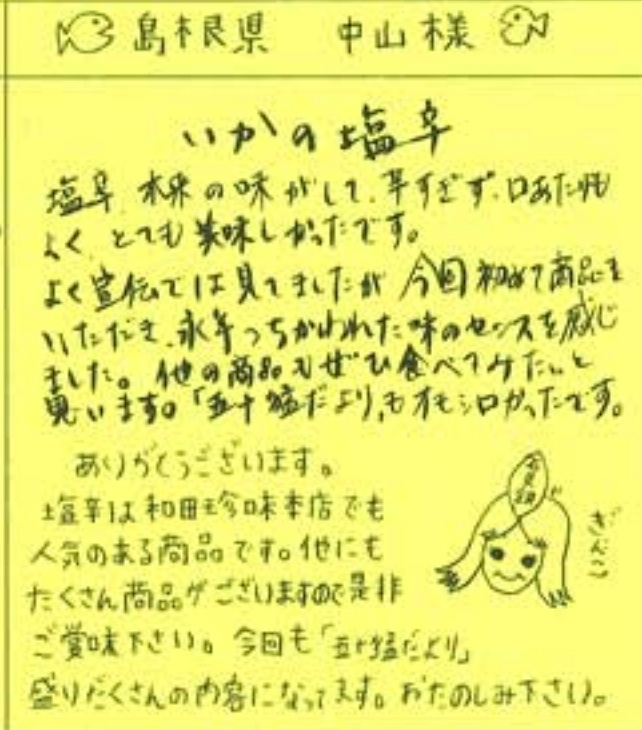 島根県 中山様
いかの塩辛
塩辛、本来の味がして、辛すぎず、口あたりも
よく、とても美味しかったです。
よく宣伝では見てましたが今回初めて商品を
いただき、永年つちかわれた味のセンスを感じ
ました。他の商品もぜひ食べてみたいと
思います。「五十猛だより」もオモシロかったです。
ありがとうございます。
塩辛は和田珍味本店でも
人気のある商品です。他にも
たくさん商品がございますので是非
ご賞味下さい。今回も「五十猛だより」
盛りだくさんの内容になってます。おたのしみ下さい。
ぎんこ